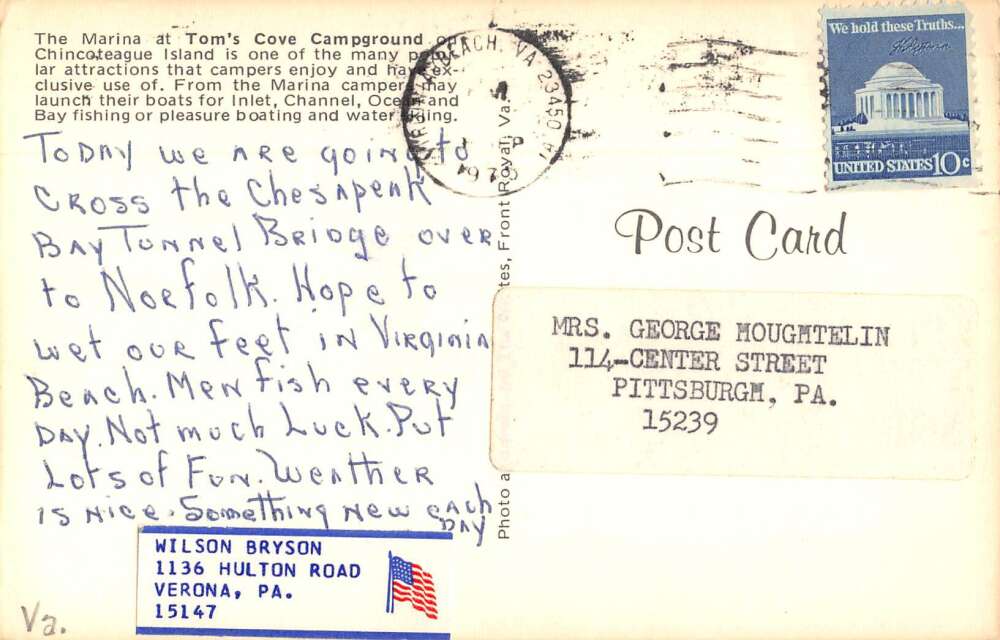 The Marina at Tom's Cove Campground on
Chincoteague Island is one of the many popu-
lar attractions that campers enjoy and have ex-
clusive use of. From the Marina campers may
launch their boats for Inlet, Channel, Ocean and
Bay fishing or pleasure boating and water skiing.
Today we are going to
cross the Chesapeak
Bay Tunnel Bridge over
to Norfolk. Hope to
wet our feet in Virginia
Beach. Men fish every
Day. Not much Luck. But
Lots of Fun. Weather
is nice. Something new each
Day
WILSON BRYSON
1136 HULTON ROAD
VERONA, PA.
15147
Va.
BEACH, VA 23450
Photo a
tes, Front Royal, Va.
We hold these Truths...
UNITED STATES 10c
Post Card
MRS. GEORGE MOUGMTELIN
114-CENTER STREET
PITTSBURGM, PA.
15239